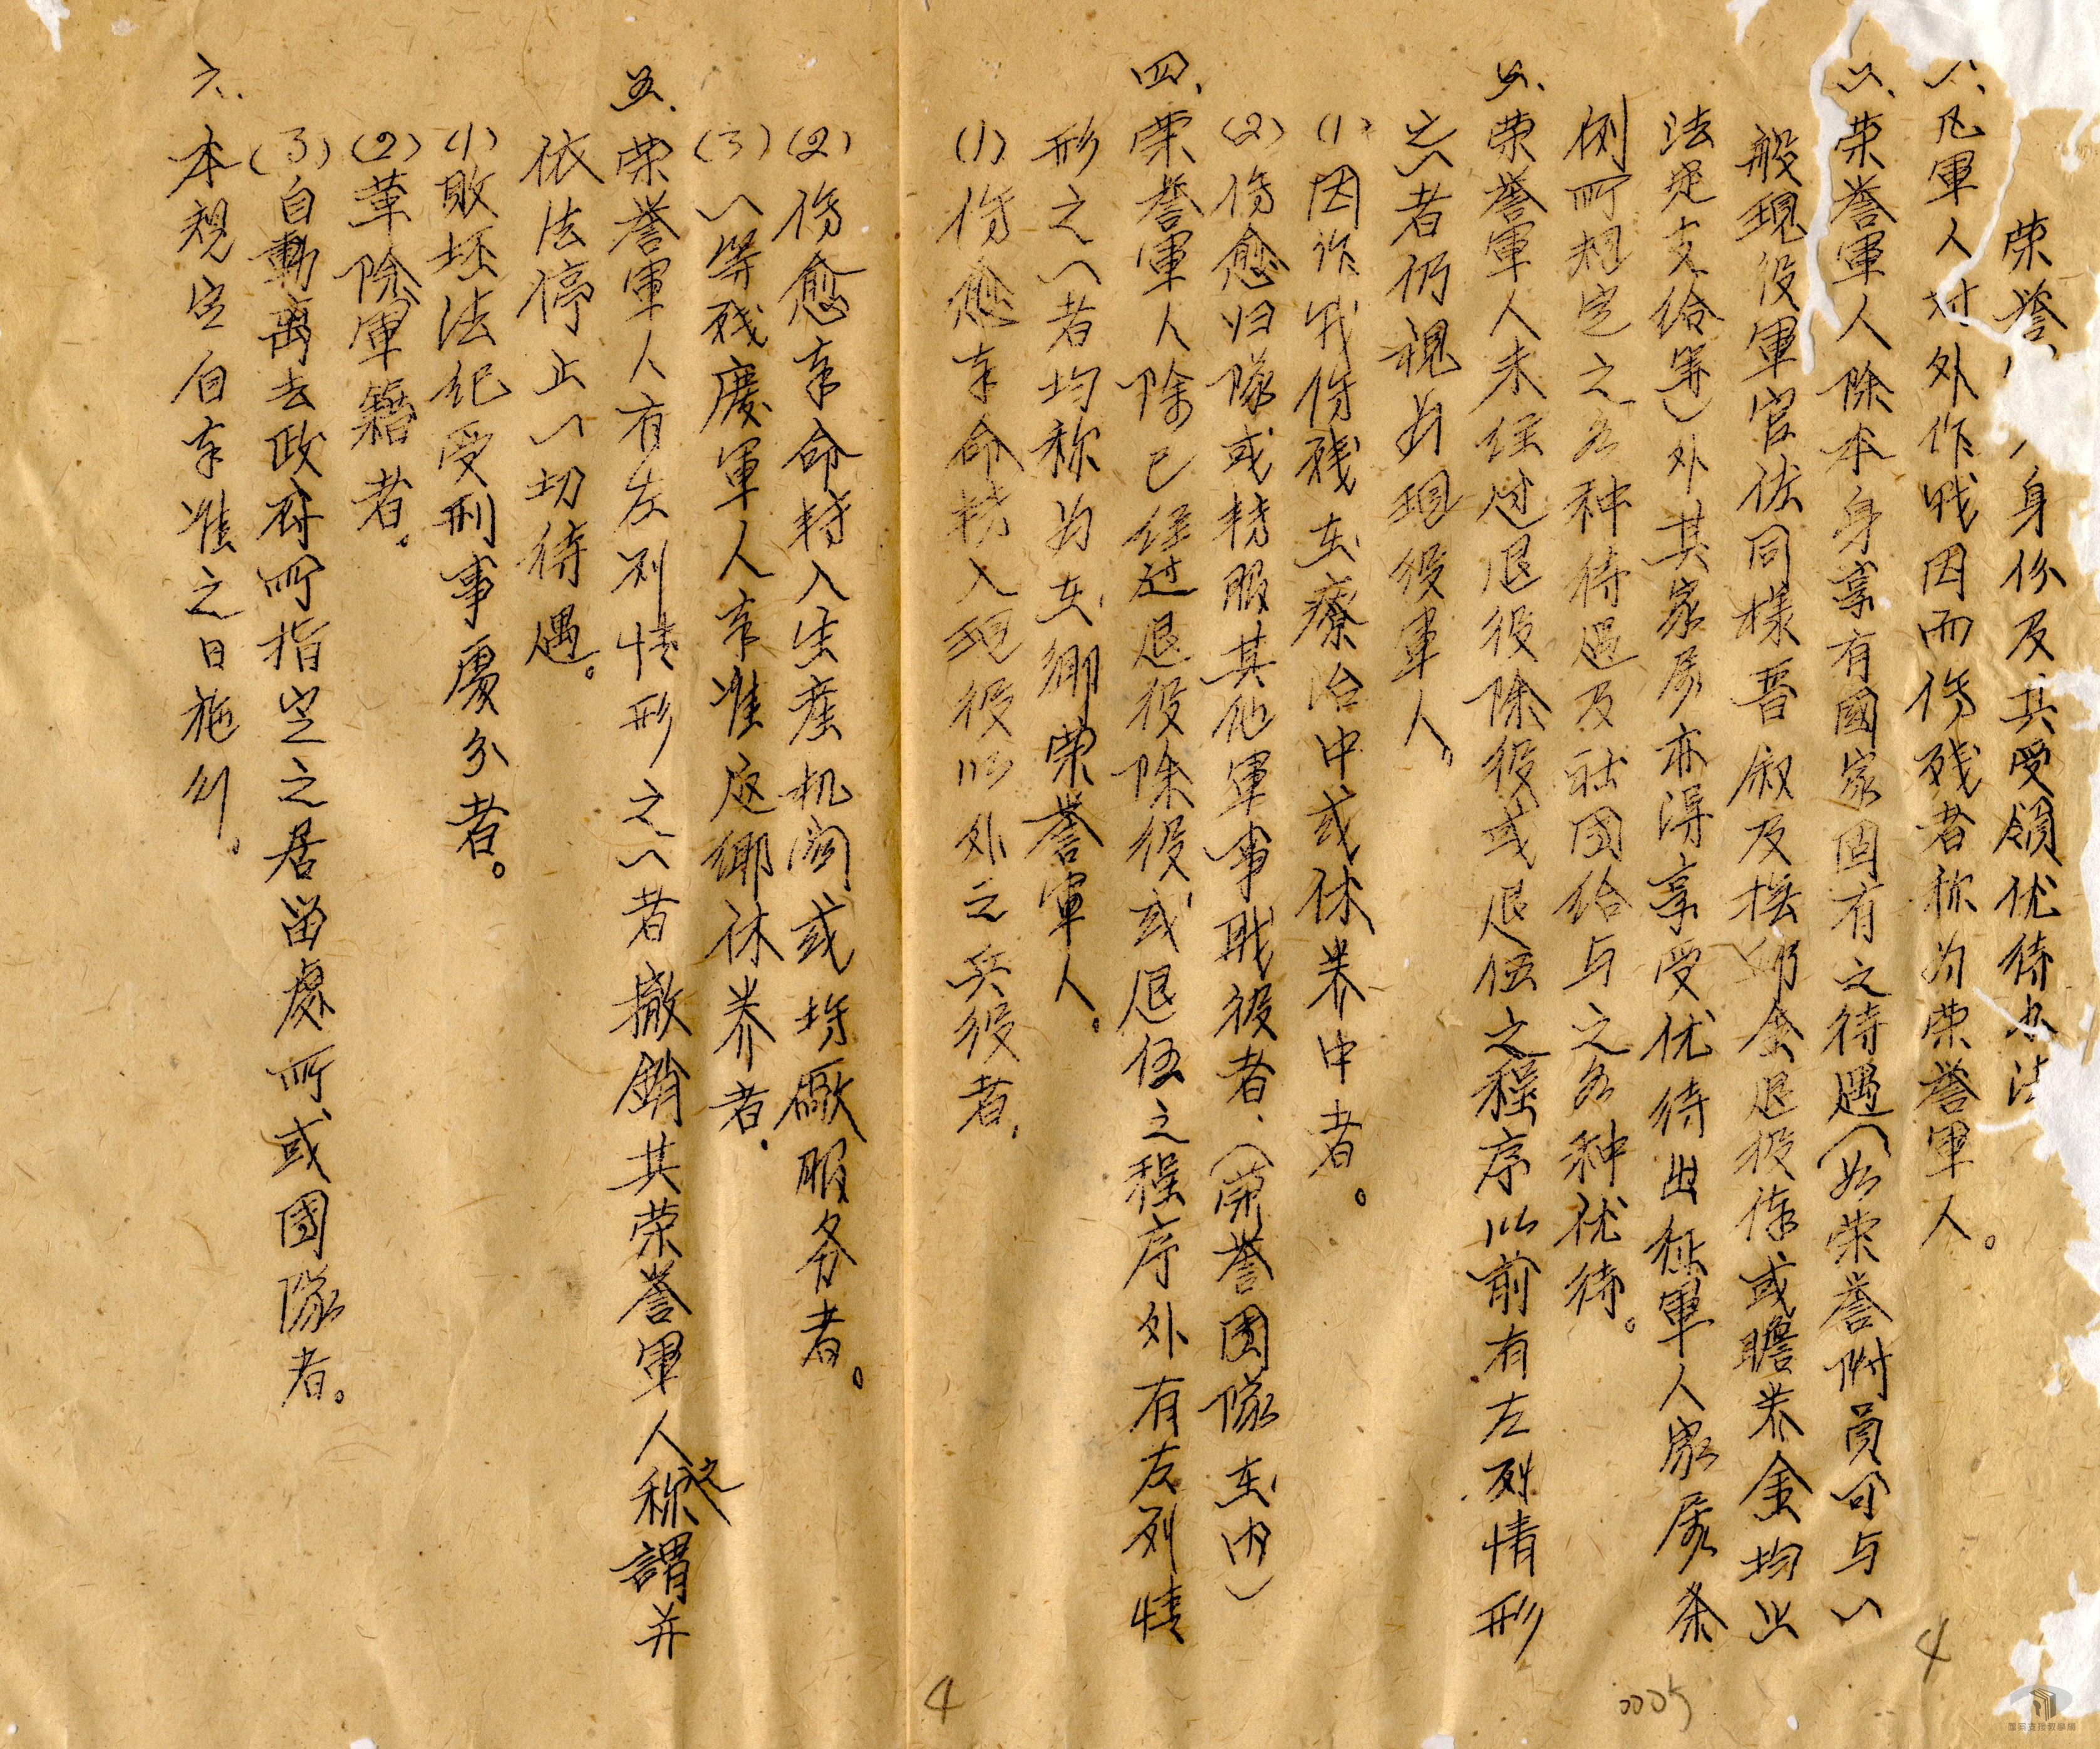 荣誉人身份及其受領优待办法
一、凡軍人对外作战因而伤残者称为荣誉軍人。
二、荣誉軍人除本身享有國家固有之待遇（如荣誉附員可与一
般現役軍官佐同樣晋叙及撫卹金退役俸或贍养金均照
法定支給等）外其家屬亦得享受优待出征軍人家屬条
例所規定之各种待遇及社团給与之各种优待。
三、荣誉軍人未经过退役除役或退伍之程序以前有左列情形
之一者仍視为現役軍人。
(1)因作战伤残在療治中或休养中者。
(2)伤愈归隊或转服其他軍事职役者、（荣誉团隊在内）
四、荣誉軍人除已经过退役除役或退伍之程序外有左列情
形之一者均称为在鄉荣誉軍人。
(1)伤愈奉命转入現役以外之兵役者.
(2)伤愈奉命转入生產机関或塲廠服务者。
(3)一等残廢軍人奉准返鄉休养者.
五、荣誉軍人有左列情形之一者撤銷其荣誉軍人之称謂并
依法停止一切待遇。
(1)敗坯法紀受刑事處分者。
(2)革除軍籍者。
(3)自動离去政府所指定之居留處所或团隊者。
六、本規定自奉准之日施行.
4
0005
4